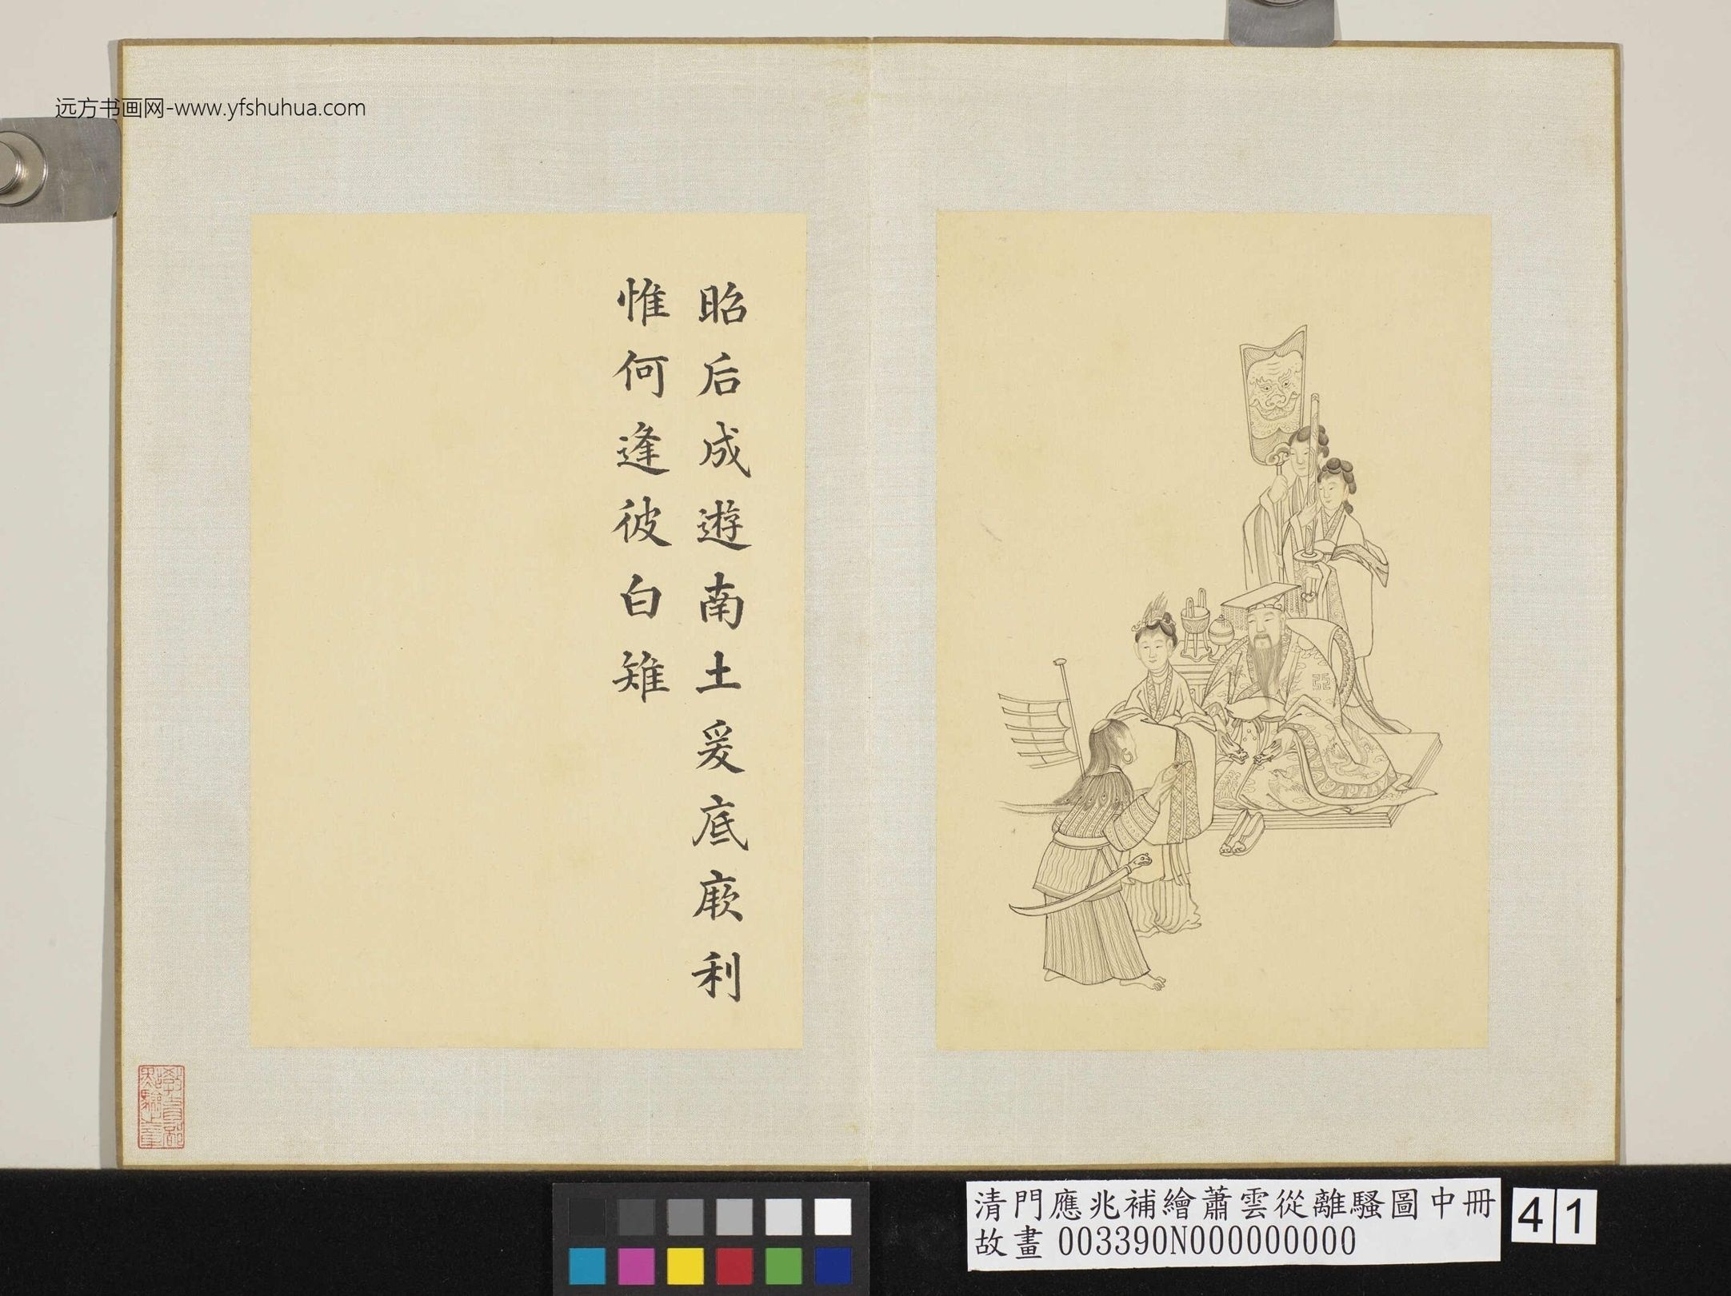 远方书画网-www.yfshuhua.com
昭后成遊南土爰底厥利
惟何逢彼白雉
清門應兆補繪蕭雲從離騷圖中冊
故畫 003390N000000000
41